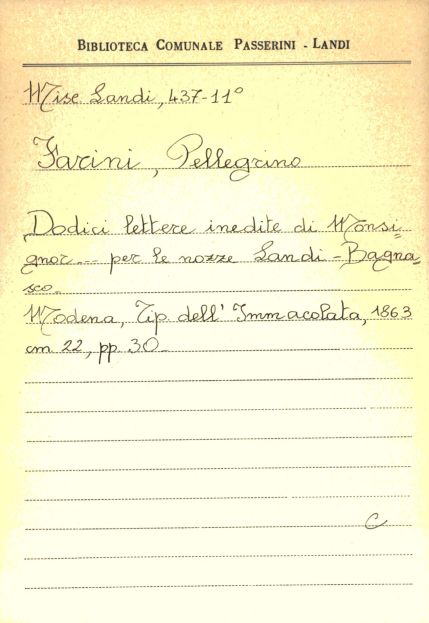 BIBLIOTECA COMUNALE PASSERINI - LANDI
Misc. Landi, 437-11°
Farini, Pellegrino
Dodici lettere inedite di Monsi=
gnor... per le nozze Landi - Bagna=
sco.
Modena, Tip. dell' Immacolata, 1863
cm. 22, pp. 30.
C